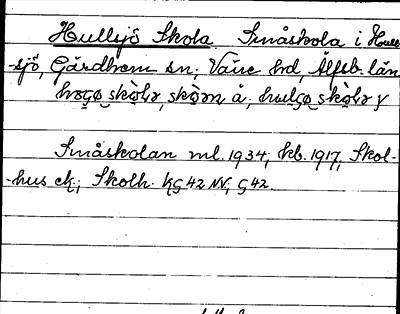 Hullsjö Skola Småskola i Hull-
-sjö, Gärdhem sn; Väne hd, Älfsb. län
skola, å, skola y
Småskolan ml. 1934, kb. 1917, Skol-
-hus ek; Skolh. KG 42 NV; G 42